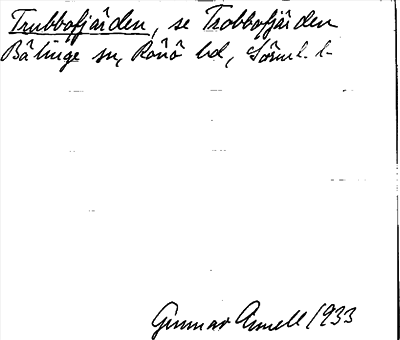 Trubbofjärden, se Trobbofjärden
Bälinge sn, Rönö hd, Sörml. l.
Gunnar Amell 1933